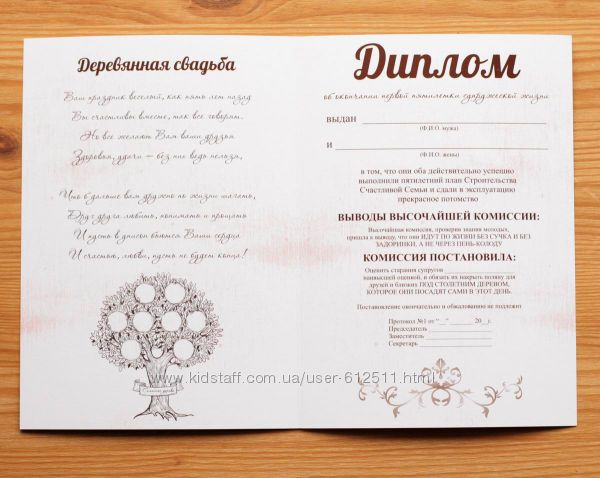 Деревянная свадьба
Ваш праздник веселый, как пять лет назад
Вы счастливы вместе, так все говорят.
Но все желают Вам ваши друзья
Здоровья, удачи – без них ведь нельзя,
Что б дальше вам дружно по жизни шагать,
Друг друга любить, понимать и прощать
И пусть в унисон бьются Ваши сердца
И счастью, любви, пусть не будет конца!
Диплом
об окончании первой пятилетки супружеской жизни
выдан
(Ф.И.О. мужа)
и
(Ф.И.О. жены)
в том, что они оба действительно успешно
выполнили пятилетний план Строительства
Счастливой Семьи и сдали в эксплуатацию
прекрасное потомство
ВЫВОДЫ ВЫСОЧАЙШЕЙ КОМИССИИ:
Высочайшая комиссия, проверив знания молодых,
пришла к выводу, что они ИДУТ ПО ЖИЗНИ БЕЗ СУЧКА И БЕЗ
ЗАДОРИНКИ, А НЕ ЧЕРЕЗ ПЕНЬ-КОЛОДУ
КОМИССИЯ ПОСТАНОВИЛА:
Оценить старания супругов
наивысшей оценкой, и обязать их накрыть поляну для
друзей и близких ПОД СТОЛЕТНИМ ДЕРЕВОМ,
КОТОРОЕ ОНИ ПОСАДЯТ САМИ В ЭТОТ ДЕНЬ.
Постановление окончательно и обжалованию не подлежит
Протокол №1 от "__" ______ 20__г.
Председатель
Заместитель
Секретарь
www.kidstaff.com.ua/user-612511.html